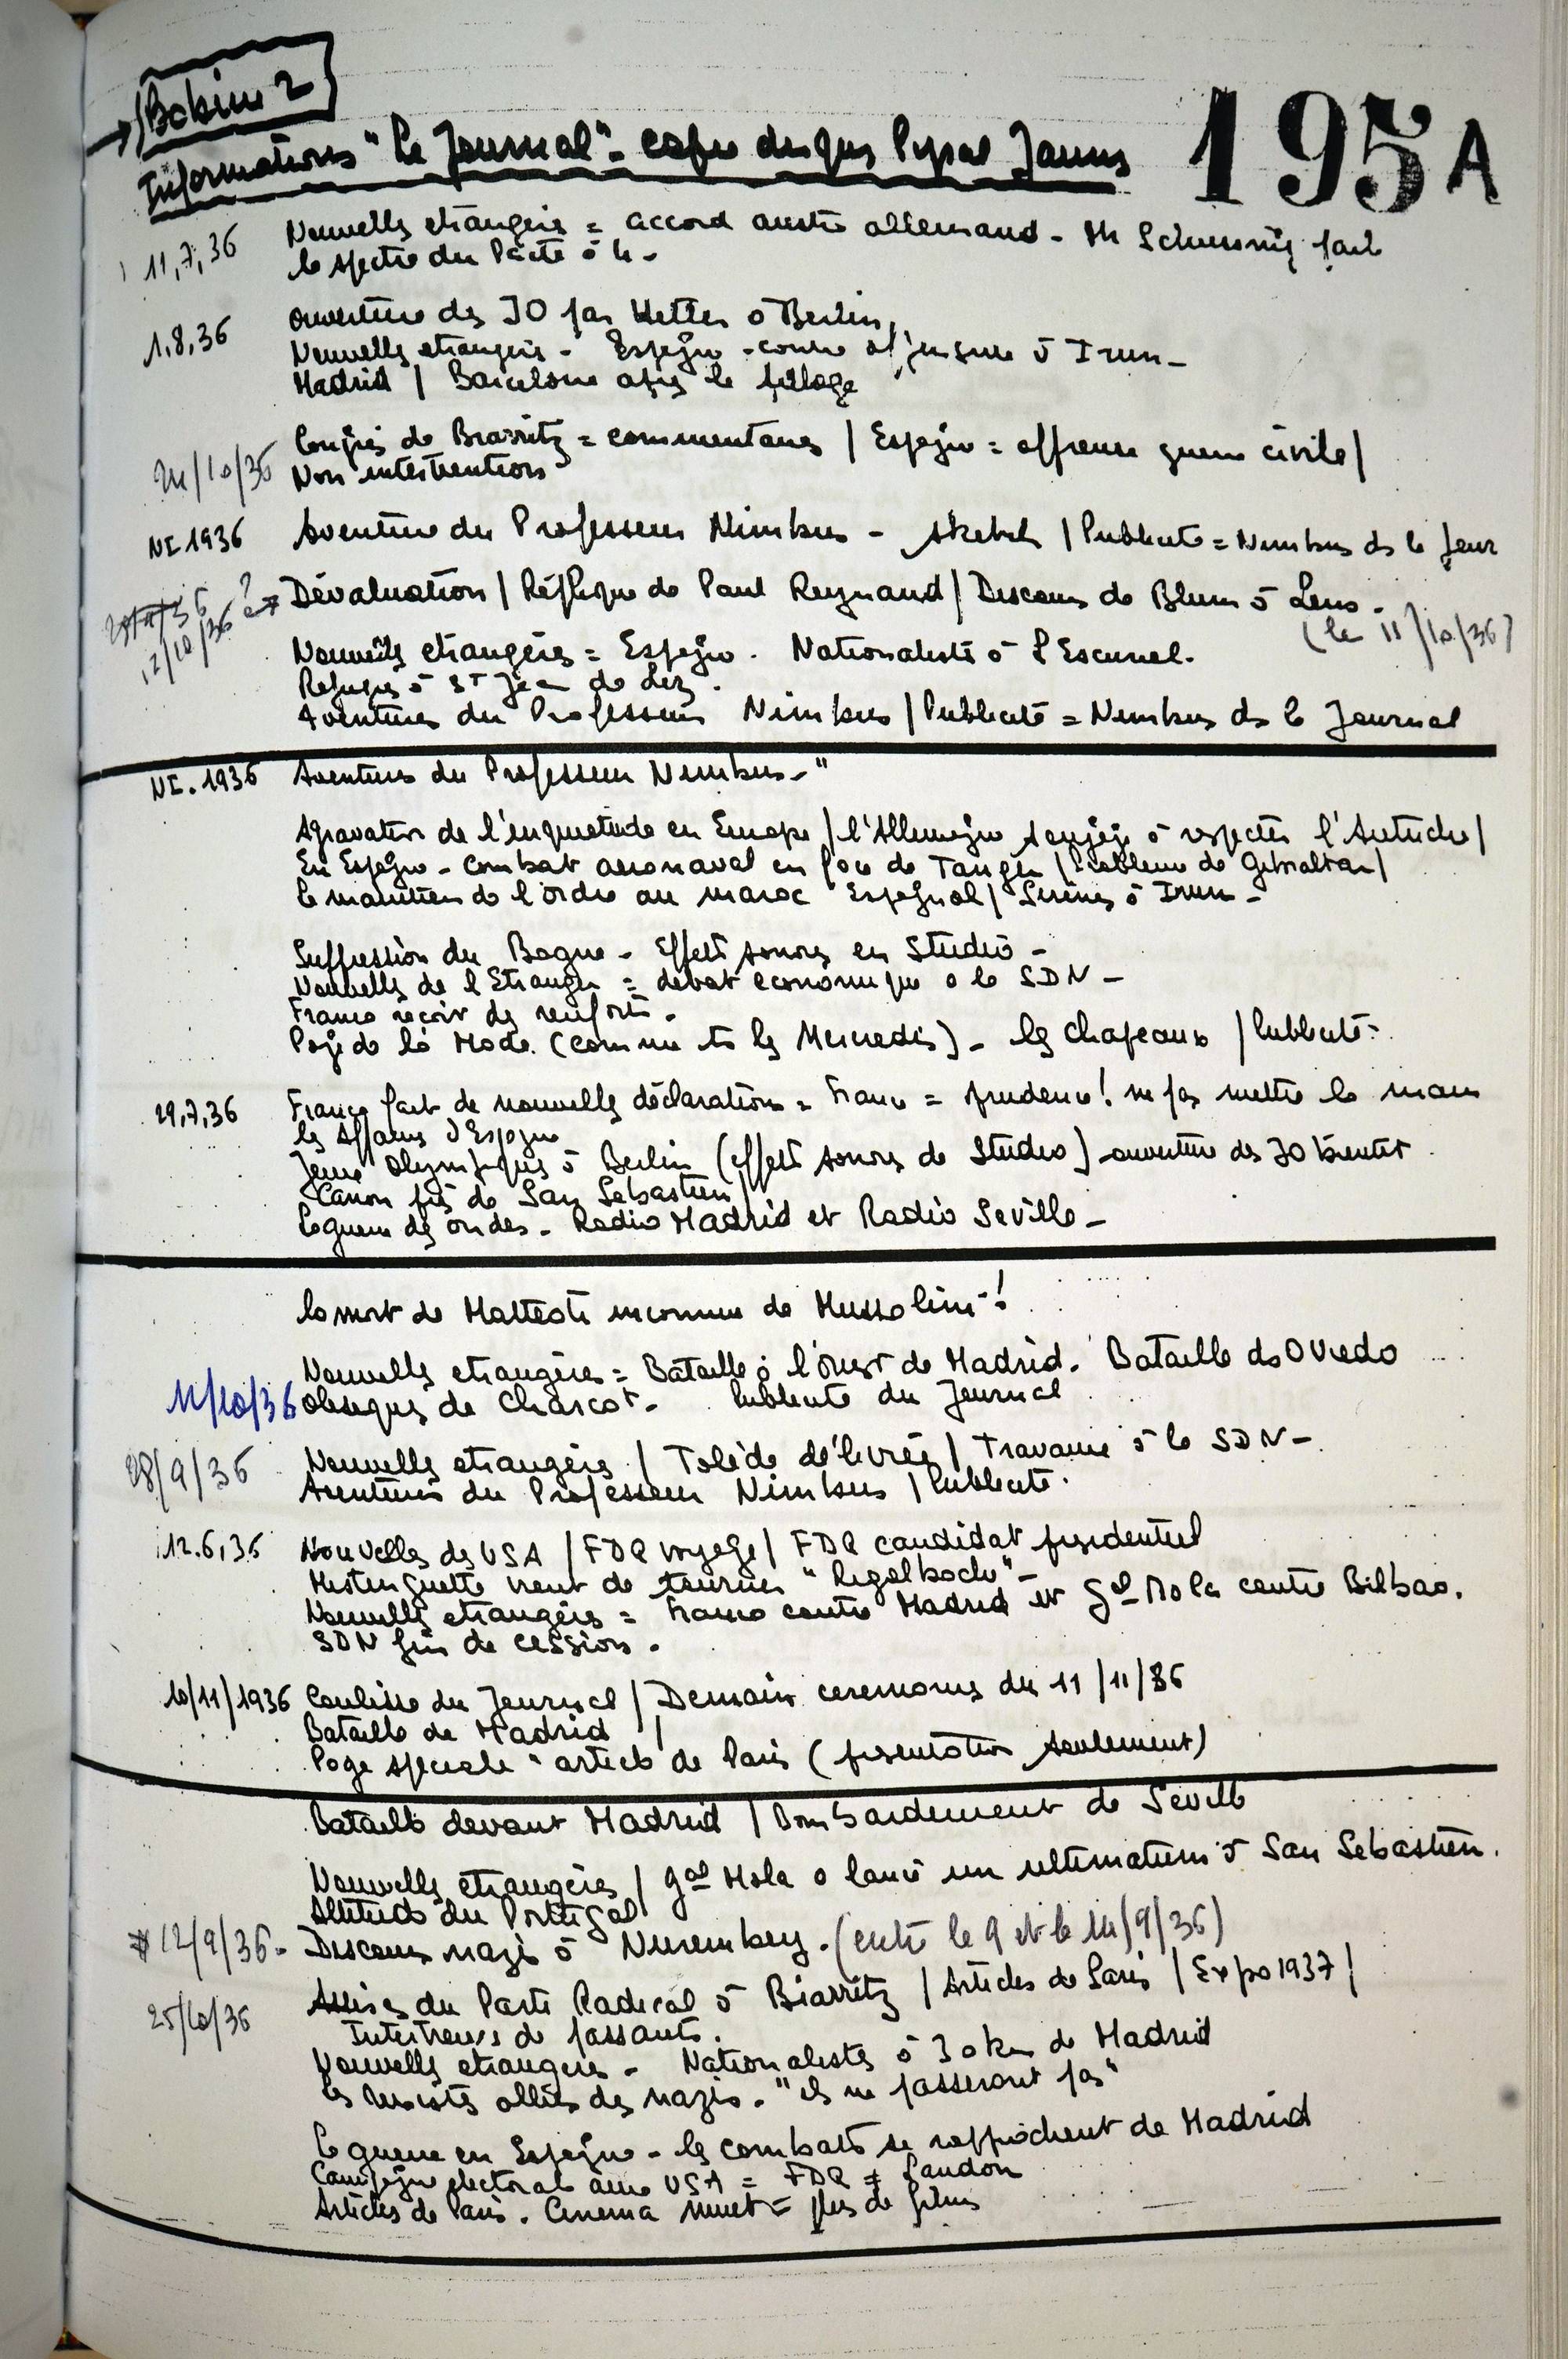 → Bobine 2
195 A
Informations "Le Journal" = copie disques Pyral Jaunes
11,7,36 Nouvelles etrangères = accord austro allemand - Mr Schussnig fait
le spectre du Pacte à 4 -
1,8,36 ouverture des JO par Hitler à Berlin,
Nouvelles etrangères - Espagne - contre offensive à Irun -
Madrid | Barcelone après le pillage
24/10/36 Congrès de Biarritz = commentaires | Espagne = affreuse guerre civile |
Non intervention
NI 1936 Aventure du Professeur Nimbus - sketch | Publicité = Nimbus ds le Jour
12/10/36 ? → Dévaluation | Réplique de Paul Reynaud | Discours de Blum à Lens -
(le 11/10/36)
Nouvelles etrangères = Espagne. Nationaliste à l'Escurial.
Refugiés à St Jean de Luz.
Aventures du Professeur Nimbus | Publicité = Nimbus ds le Journal
NI. 1936 Aventures du Professeur Nimbus - "
Agravation de l'inquietude en Europe | l'Allemagne s'engage à respecter l'Autriche |
En Espagne - combat aeronaval en face de Tanger | Problème de Gibraltar |
Le maintien de l'ordre au maroc Espagnol | Sirènes à Irun -
Suppression du Bagne - Effets sonores en Studio -
Nouvelles de l'Etranger = debat economique à la SDN -
Franco reçoit des renforts.
Page de la Mode (comme ts les Mercredis) - les chapeaux | Publicité.
29,7,36 Franco fait de nouvelles déclarations = France = prudence ! ne pas mettre la main
les Affaires d'Espagne
Jeux Olympiques à Berlin (effets sonores de Studio) - ouverture des JO bientôt
Canon près de San Sebastien |
La guerre des ondes - Radio Madrid et Radio Seville -
La mort de Matteoti inconnue de Mussolini - !
Nouvelles etrangères = Bataille à l'ouest de Madrid. Bataille ds Oviedo
11/10/36 Obseques de Charcot - Publicité du Journal
28/9/36 Nouvelles etrangères | Tolède délivrée | Travaux à la SDN -
Aventures du Professeur Nimbus | Publicité.
12.6,36 Nouvelles des USA | FDR voyage | FDR candidat presidentiel
Mistinguette vient de tourner "Rigolboche" -
Nouvelles etrangères = Franco contre Madrid et Gal Mola contre Bilbao.
SDN fin de cession.
10/11/1936 Coulisse du Journal | Demain ceremonies du 11/11/36
Bataille de Madrid |
Page speciale " article de Paris (presentation seulement)
Bataille devant Madrid | Bombardement de Seville
Nouvelles etrangères | gal Mola a lancé un ultimatum à San Sebastien.
Attitude du Portugal
12/9/36 - Discours nazi à Nuremberg. (entre le 9 et le 14/9/36)
25/10/36 Assises du Parti Radical à Biarritz | Articles de Paris | Expo 1937 |
Interviews de passants.
Nouvelles etrangeres - Nationalistes à 30 km de Madrid
les allies des nazis. "ils ne passeront pas"
La guerre en Espagne - les combats se rapprochent de Madrid
Campagne electorale aux USA = FDR ≠ Landon
Articles de Paris. Cinema muet = plus de films